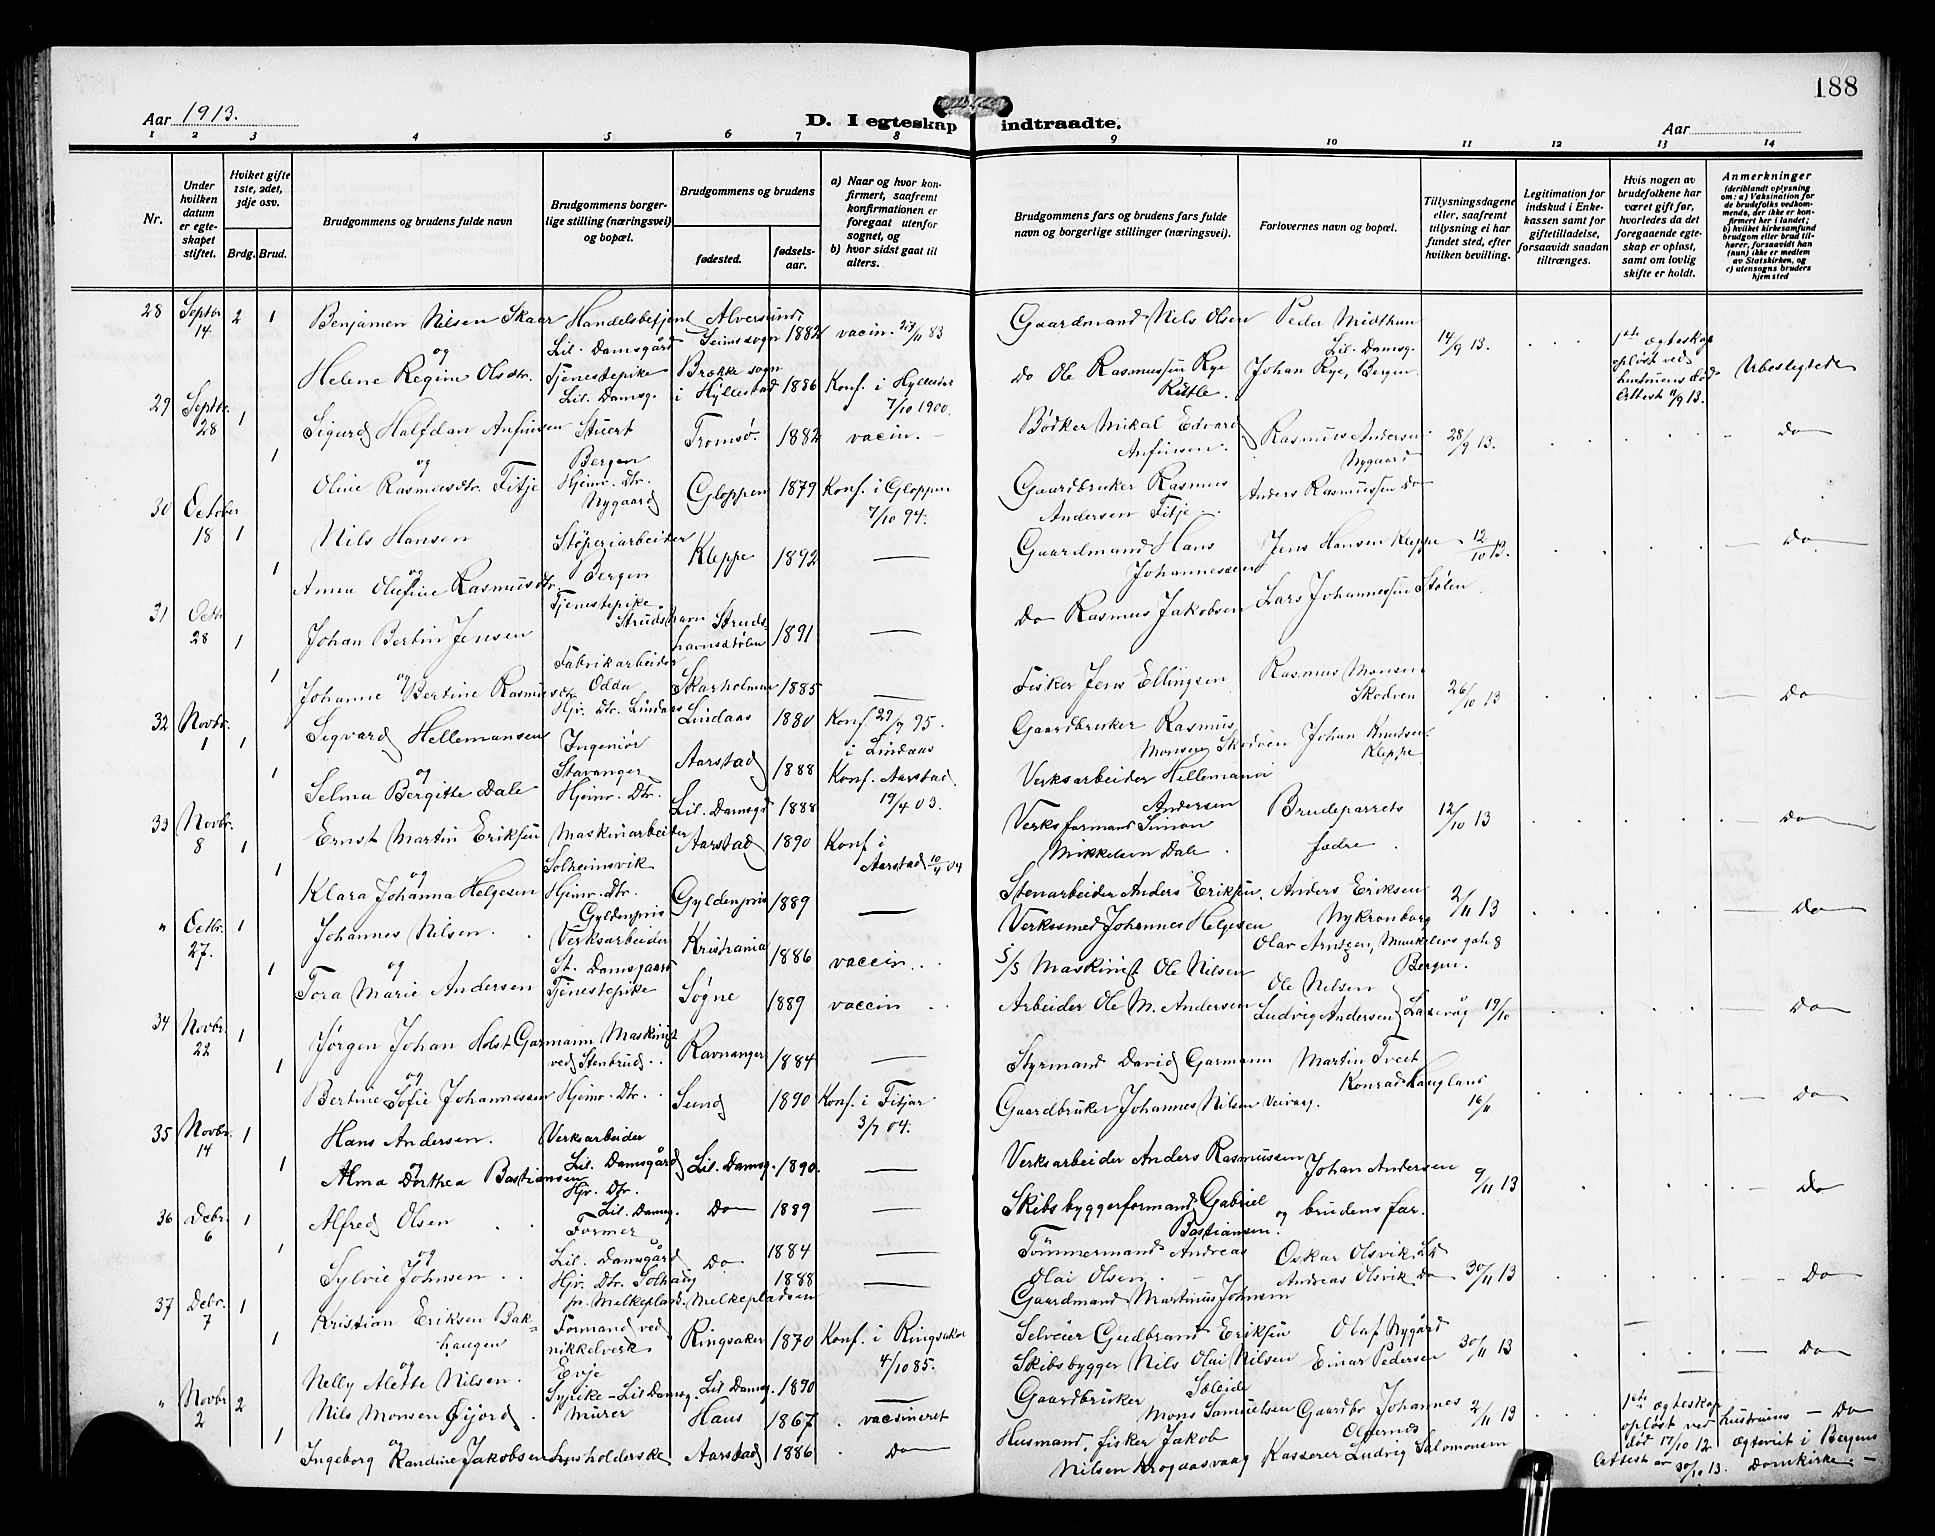 188
Aar 1913.
D. I egteskap indtraadte.
Aar
1 2 3 4 5 6 7 8 9 10 11 12 13 14
Nr.
Under hvilken datum er egteskapet stiftet.
Hvilket gifte 1ste, 2det, 3dje osv.
Brdg. Brud.
Brudgommens og brudens fulde navn
Brudgommens borgerlige stilling (næringsvei) og bopæl.
Brudgommens og brudens
fødested.
fødselsaar.
a) Naar og hvor konfirmert, saafremt konfirmationen er foregaat utenfor sognet, og
b) hvor sidst gaat til alters.
Brudgommens fars og brudens fars fulde navn og borgerlige stillinger (næringsvei).
Forlovernes navn og bopæl.
Tillysningsdagene eller, saafremt tillysning ei har fundet sted, efter hvilken bevilling.
Legitimation for indskud i Enkekassen samt for giftetilladelse, forsaavidt saadan tiltrænges.
Hvis nogen av brudefolkene har været gift før, hvorledes da det foregaaende egteskap er opløst, samt om lovlig skifte er holdt.
Anmerkninger
(deriblandt oplysning om: a) Vaksination for de brudefolks vedkommende, der ikke er konfirmert her i landet; b) hvilket kirkesamfund brudgom eller brud tilhører, forsaavidt han (hun) ikke er medlem av Statskirken, og c) utensogns bruders hjemsted
28 Septbr 14 2 1 Benjamen Nilsen Skaar Handelsbetjent Lil. Damsgård Alversund, Seims sogn 1882 vacin. 27/11 83 Gaardmand Nils Olsen Peder Midthun Lil. Damsg. 14/9 13. 1ste ægteskap opløst ved hustruens død Attest 9/9 13.
og Helene Regine Olsdtr. Tjenestepike Lil. Damsg. Brække sogn i Hyllestad 1886 Konf. i Hyllestad 7/10 1900. Do Ole Rasmussen Rye Rutle. Johan Rye, Bergen Ubeslegtede
29 Septbr. 28 1 Sigurd Halfdan Anfinsen Stuert Bergen Tromsø. 1882 vacin. Bødker Mikal Edvard Anfinsen. Rasmus Andersen Nygaard 28/9 13. Do
1 og Oline Rasmusdtr. Fitje Hjemv. Dtr. Nygaard Gloppen 1879 Konf. i Gloppen 7/10 94. Gaardbruker Rasmus Andersen Fitje. Anders Rasmussen Do
30 October 18 1 Nils Hansen Støperiarbeider Bergen Kleppe 1892 Gaardmand Hans Johannessen Jens Hansen Kleppe 12/10 13. Do
1 og Anna Olufine Rasmusdtr. Tjenestepike Strudshavn Strudshavnsdtølen 1891 Do Rasmus Jakobsen Lars Johannessen Stølen
31 Octr 28 1 Johan Bertin Jensen Fabrikarbeider Odda Skarholmen 1885 Fisker Jens Ellingsen Rasmus Monsen Skodven 26/10 13 Do
1 og Johanne Bertine Rasmusdtr Hjv. Dtr. Lindaas Lindaas 1880 Konf. 29/9 95. i Lindaas Gaardbruker Rasmus Monsen Skodven Johan Knudsen Kleppe
32 Novbr. 1 1 Sigvard Hellemansen Ingeniør Stavanger Aarstad 1888 Konf. Aarstad 19/4 03. Verksarbeider Hellemann Andersen Brudeparrets fædre. 12/10 13 Do
1 og Selma Bergitte Dale Hjemv. Dtr. Lil. Damsgd 1888 Verksformand Simon Mikkelsen Dale.
33 Novbr. 8 1 Ernst Martin Eriksen Maskinarbeider Solheimsvik Aarstad 1890 Konf i Aarstad 10/4 04 Stenarbeider Anders Eriksen. Anders Eriksen Nykronborg 2/11 13 Do
1 og Klara Johanna Helgesen Hjemv. Dtr. Gyldenpris Gyldenpris 1889 Verksmed Johannes Helgesen Olav Arntzen, Munkelivs gate 8 Bergen.
" Octbr. 27. 1 Johannes Nilsen. Verksarbeider St. Damsgaard Kristiania 1886 vaccin. S/S Maskinist Ole Nilsen Ole Nilsen Laxevåg 19/10 Do
1 og Tora Marie Andersen Tjenestepike Søgne 1889 vaccin Arbeider Ole M. Andersen Ludvig Andersen
34 Novbr. 22 1 Jørgen Johan Holst Garmann Maskinist ved Stenbrud Ravnanger 1884 Styrmand David Garmann Martin Tveit Konrad Haugland 16/11 Do
1 og Bertine Sofie Johannessen Hjemv. Dtr. Sund 1890 Konf. i Fitjar 3/7 04. Gaardbruker Johannes Nilsen Veivaag.
35 Novbr. 14 1 Hans Andersen. Verksarbeider Lil. Damsgård Lil. Damsg. 1890. Verksarbeider Anders Rasmussen Johan Andersen 9/11 13 Do
1 og Alma Dorthea Bastiansen Hjv. Dtr. Lil. Damsg. Do 1889 Skibsbyggerformand Gabriel Bastiansen. og brudens far.
36 Debr. 6 1 Alfred Olsen Former Lil. Damsgård Do 1884 Tømmermand Andreas Olai Olsen. Oskar Olsvik, Ld Andreas Olsvik Do 30/11 13 Do
1 og Sylvie Johnsen Hjv. Dtr. Solhaug pr. Melkeplads. Melkepladsen 1888 Gaardmand Martinus Johnsen
37 Debr. 7 1 Kristian Eriksen Bakhaugen Formand ved nikkelverk. Evje Ringsaker 1870 Konf. i Ringsaker 4/10 85. Selveier Gudbrand Eriksen Olaf Nygård 30/11 13 Do
1 og Nelly Alette Nilsen. Sypike - Lil Damsg. Lil Damsg. 1890 Skibsbygger Nils Olai Nilsen Einar Pedersen
" Novbr 2 2 Nils Monsen Øijord. Murer Haus 1867 vaccineret Gaardbruker Mons Samuelsen Sæleide Gaardbr Johannes 2/11 13 1ste ægteskap opløst ved hustruens død 17/10 12. Attest av 30/10 13. Do Ægteviet i Bergens Domkirke
1 og Ingeborg Randine Jakobsen Huusholderske Aarstad 1886 Do Husmand, fisker Jakob Nilsen Krogaasvaag Kasserer Ludvig Salomonsen